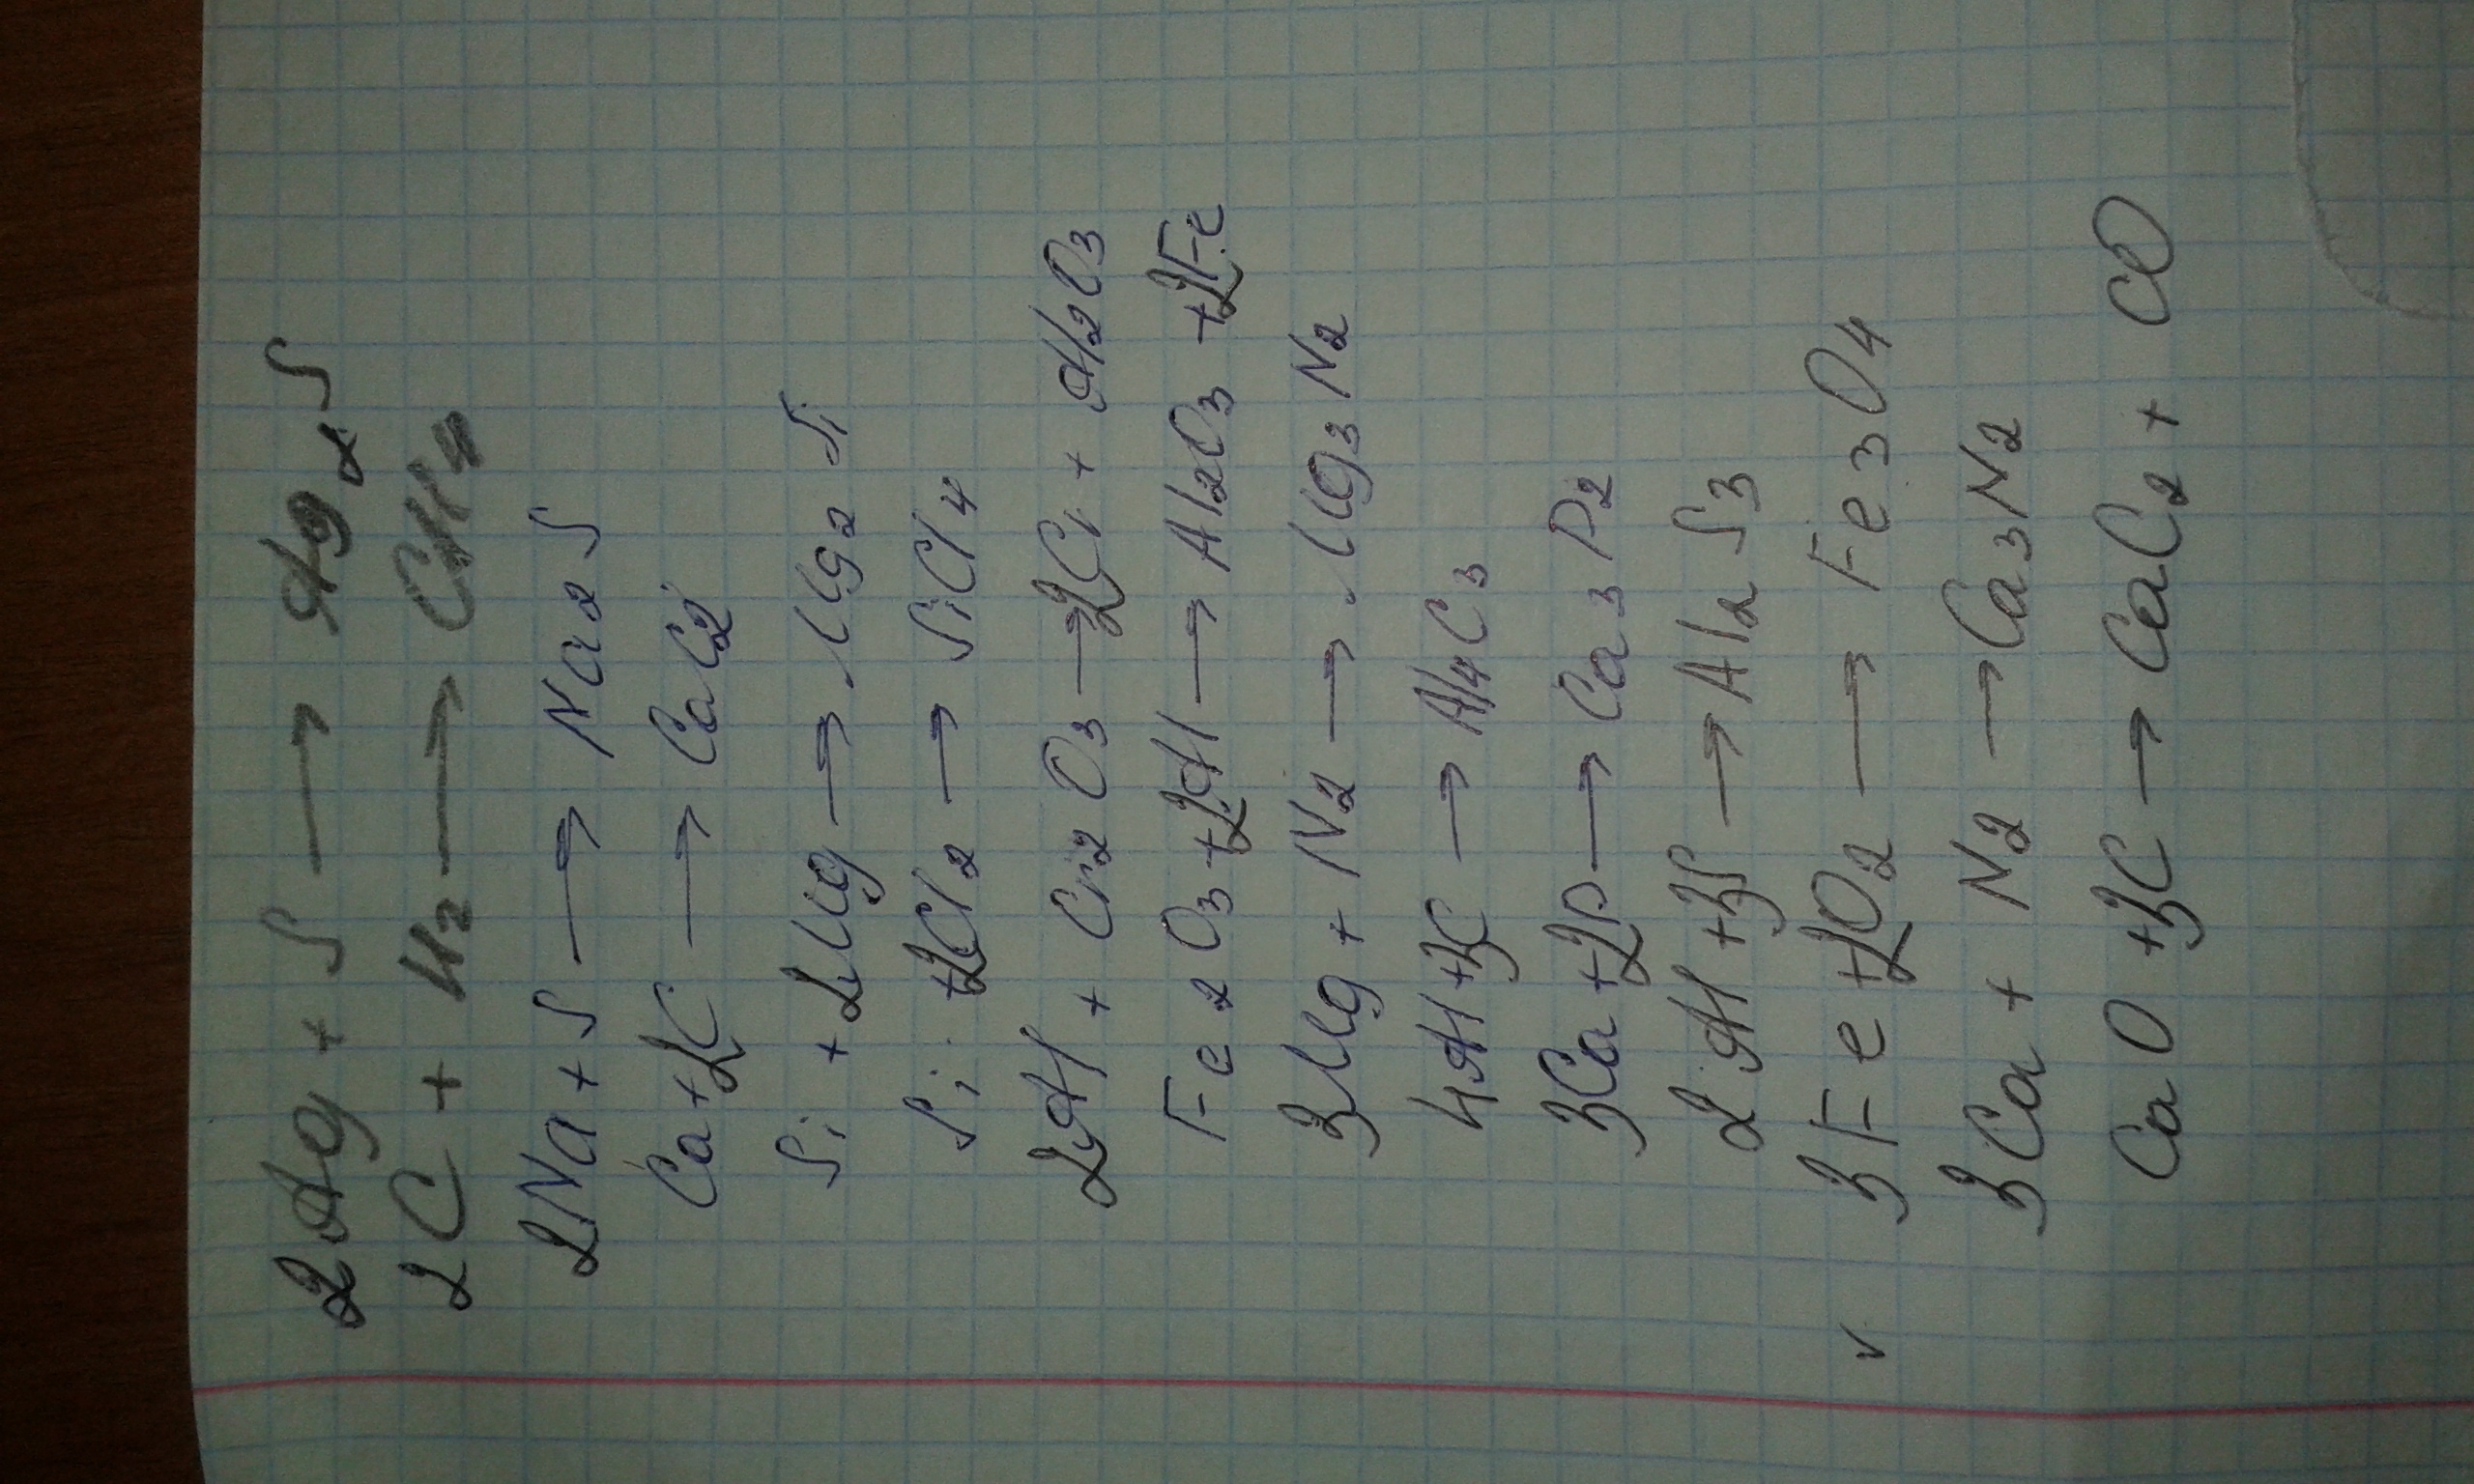 2Ag + S → Ag2S
2C + H2 → CH4
2Na + S → Na2S
Ca + 2C → CaC2
Si + 2Mg → Mg2Si
Si + 2Cl2 → SiCl4
2Al + Cr2O3 → 2Cr + Al2O3
Fe2O3 + 2Al → Al2O3 + 2Fe
3Mg + N2 → Mg3N2
4Al + 3C → Al4C3
3Ca + 2P → Ca3P2
2Al + 3S → Al2S3
v 3Fe + 2O2 → Fe3O4
3Ca + N2 → Ca3N2
CaO + 3C → CaC2 + CO